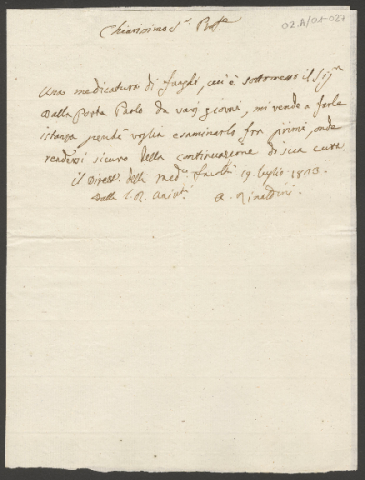 02.A/01-027
Chiarissimo S.r Prof.e
Una medicatura di funghi, cui è sottomesso il Sig.r
Dalla Porta Paolo da varj giorni, mi rende a farle
istanza perché voglia esaminarlo fra primi, onde
rendersi sicuro della continuazione di sua cura
il Dirett. della med. Facoltà 19. luglio 1803.
Dalla I. R.
A. Rinaldini.